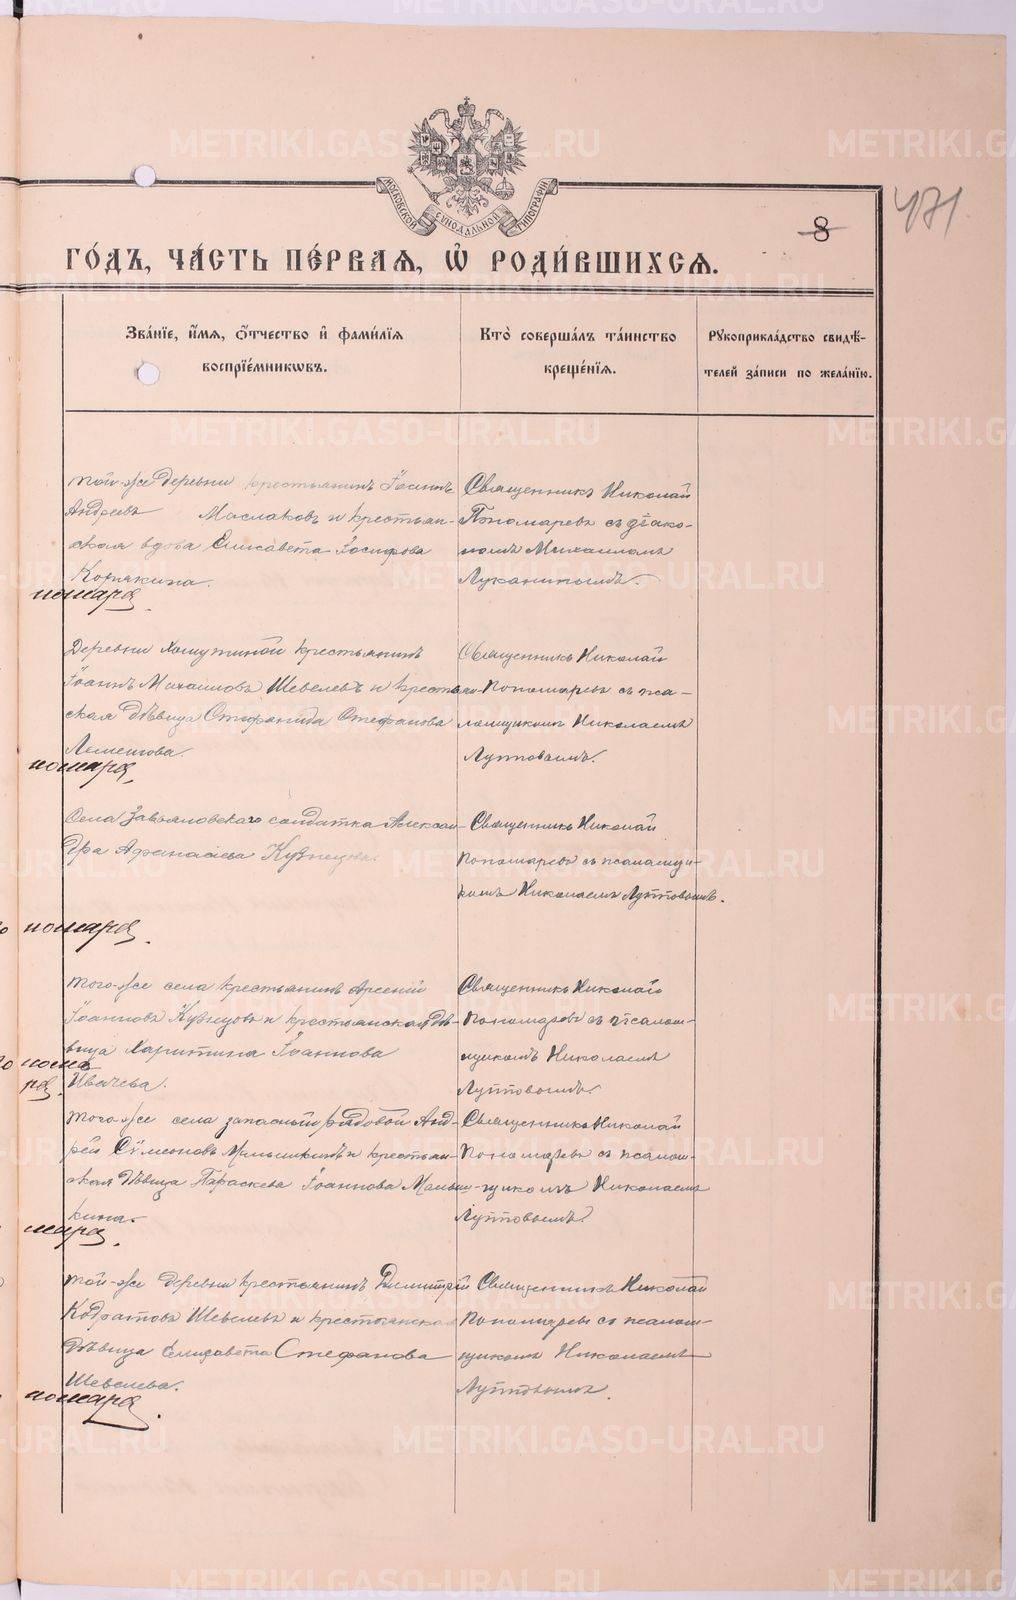 МОСКОВСКОЙ СУНОДАЛЬНОЙ ТИПОГРАФІИ
8
471
ГО́ДЪ, ЧА́СТЬ ПЕ́РВАЯ, Ѡ҆ РОДИ́ВШИХСЯ.
Зва́нїе, и҆́мя, ѻ҆́тчество и҆ фами́лїя
воспрїе́мникѡвъ.
Кто̀ соверша́лъ та́инство
креще́нїя.
Рꙋкоприкла́дство свидѣ́-
телей за́писи по жела́нїю.
той-же деревни крестьянинъ Іоаннъ
Андреевъ Маслаковъ и крестьян-
ская вдова Елисавета Іосифова
Корякина.
Священникъ Николай
Пономаревъ съ діако-
номъ Михаиломъ
Луканинымъ.
понара
Деревни Хомутиной крестьянинъ
Іоаннъ Михаиловъ Шевелевъ и крестьян-
ская дѣвица Стефанида Стефанова
Лемешова.
Священникъ Николай
Пономаревъ съ пса-
ломщикомъ Николаемъ
Луптовымъ.
Села Завьяловскаго солдатка Алексан-
дра Афанасіева Кузнецова.
Священникъ Николай
Пономаревъ съ псаломщи-
комъ Николаемъ Луптовымъ.
того-же села крестьянинъ Арсеній
Іоанновъ Кузнецовъ и крестьянская дѣ-
вица Харитина Іоаннова
Ивачева.
Священникъ Николай
Пономаревъ съ псалом-
щикомъ Николаемъ
Луптовымъ.
того-же села запасный рядовой Анд-
рей Сѵмеоновъ Меньшикинъ и крестьян-
ская дѣвица Параскева Іоаннова Мень-
кина.
Священникъ Николай
Пономаревъ съ псалом-
щикомъ Николаемъ
Луптовымъ.
той-же деревни крестьянинъ Димитрій
Кодратовъ Шевелевъ и крестьянская
дѣвица Елизавета Стефанова
Шевелева.
Священникъ Николай
Пономаревъ съ псалом-
щикомъ Николаемъ
Луптовымъ.
METRIKI.GASO-URAL.RU